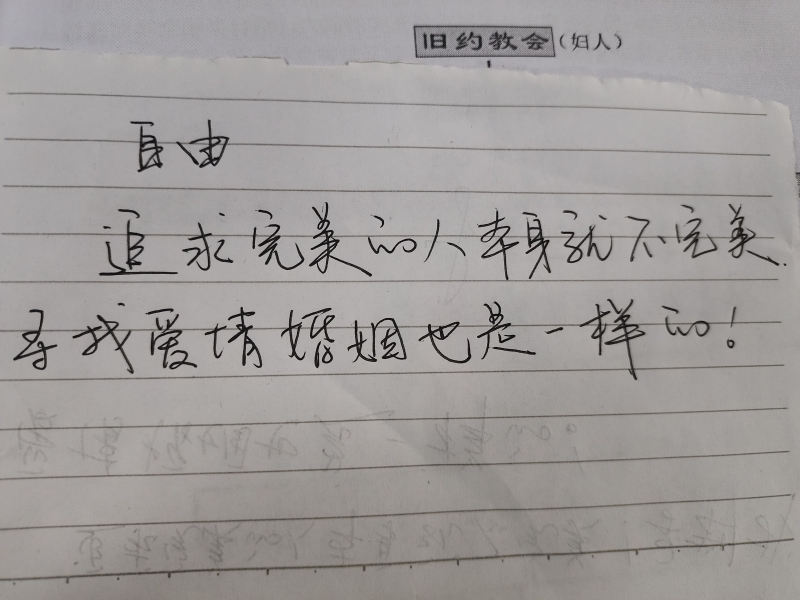 旧约教会(妇人)
自由
追求完美的人本身就不完美.
寻找爱情婚姻也是一样的!